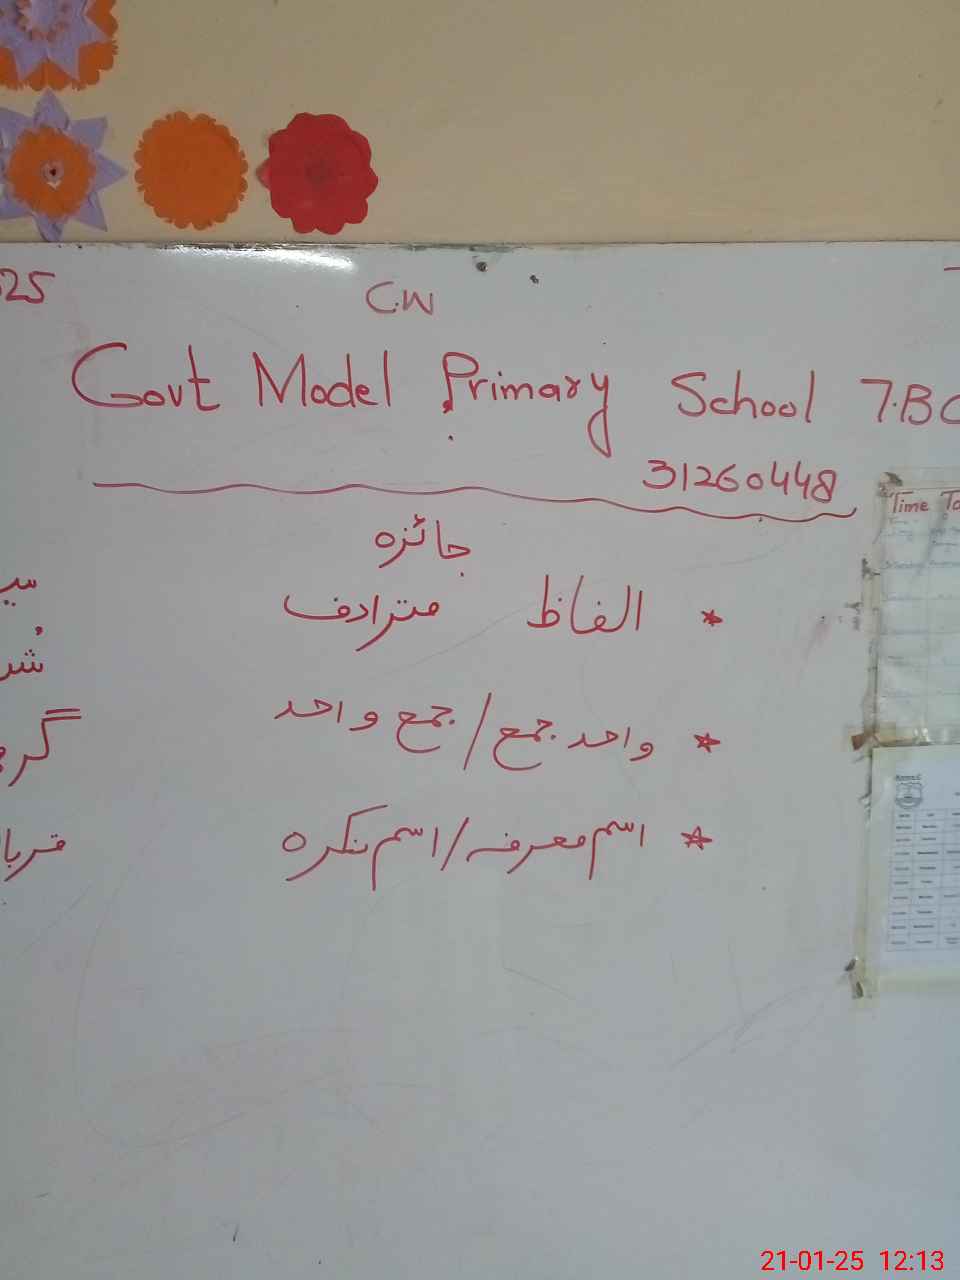 CW
Govt Model Primary School 7.BC
31260448
جائزہ
* الفاظ مترادف
* واحد جمع / جمع واحد
* اسم معرفہ / اسم نکرہ
Time Ta
21-01-25 12:13